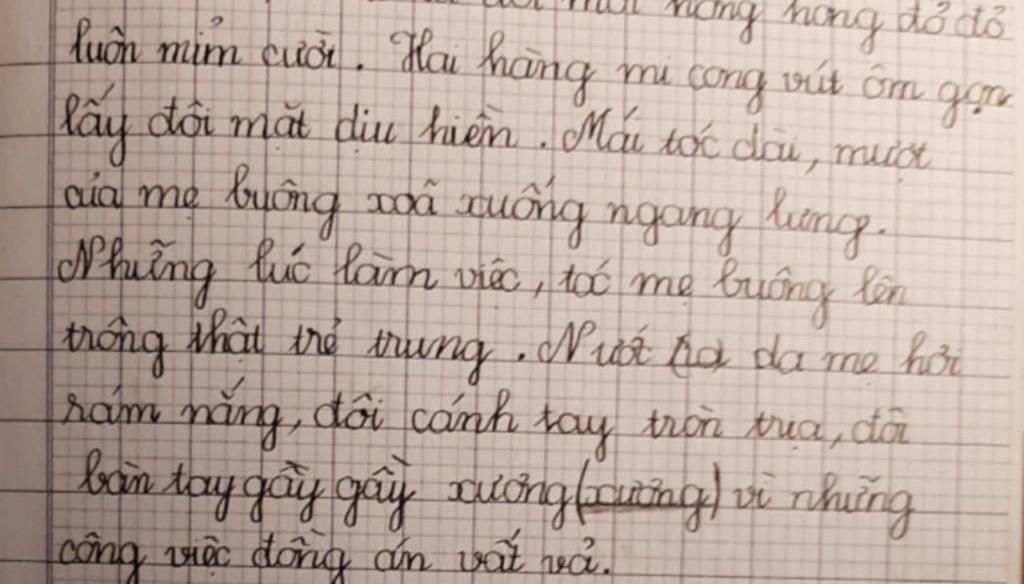 môi hồng hồng đỏ đỏ
luôn mỉm cười. Hai hàng mi cong vút ôm gọn
lấy đôi mắt dịu hiền. Mái tóc dài, mượt
của mẹ buông xoã xuống ngang lưng.
Những lúc làm việc, tóc mẹ buông lên
trông thật trẻ trung. Nướt da mẹ hơi
rám nắng, đôi cánh tay tròn trịa, đôi
bàn tay gầy gầy xương (xương) vì những
công việc đồng án vất vả.